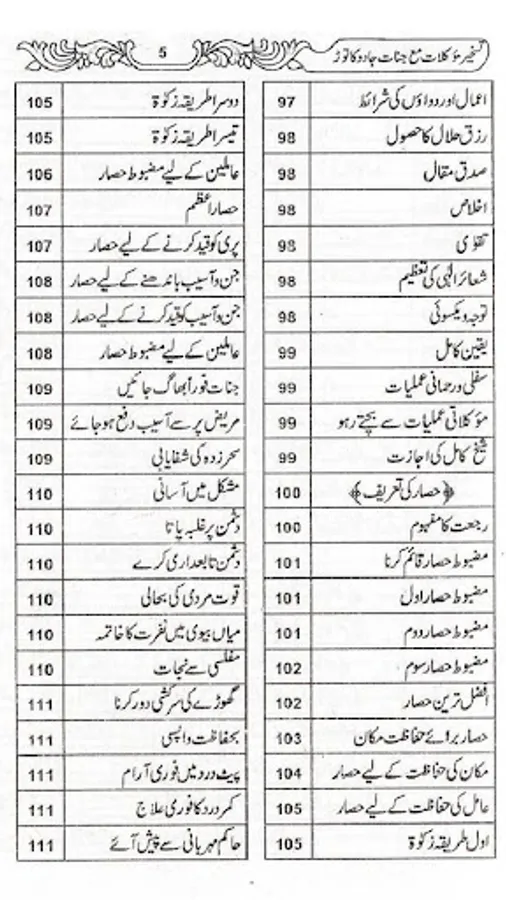 تسخیر مؤکلات مع جنات جادو کا توڑ
5
اعمال اور دواؤں کی شرائط 97
رزق حلال کا حصول 98
صدق مقال 98
اخلاص 98
تقوٰی 98
شعائر الٰہی کی تعظیم 98
توجہ ویکسوئی 98
یقین کامل 99
سفلی ورحمانی عملیات 99
مؤکلاتی عملیات سے بچتے رہو 99
شیخ کامل کی اجازت 99
﴿حصار کی تعریف﴾ 100
رجعت کا مفہوم 100
مضبوط حصار قائم کرنا 101
مضبوط حصار اول 101
مضبوط حصار دوم 101
مضبوط حصار سوم 102
افضل ترین حصار 102
حصار برائے حفاظت مکان 103
مکان کی حفاظت کے لیے حصار 104
عامل کی حفاظت کے لیے حصار 105
اول طریقہ زکوٰۃ 105
دوسرا طریقہ زکوٰۃ 105
تیسرا طریقہ زکوٰۃ 105
عاملین کے لیے مضبوط حصار 106
حصار اعظم 107
پری کو قید کرنے کے لیے حصار 107
جن و آسیب باندھنے کے لیے حصار 108
جن و آسیب کو قید کرنے کے لیے حصار 108
عاملین کے لیے مضبوط حصار 108
جنات فوراً بھاگ جائیں 109
مریض پر سے آسیب دفع ہو جائے 109
سحر زدہ کی شفایابی 109
مشکل میں آسانی 110
دشمن پر غلبہ پانا 110
دشمن تابعداری کرے 110
قوت مردی کی بحالی 110
میاں بیوی میں نفرت کا خاتمہ 110
مفلسی سے نجات 110
گھوڑے کی سرکشی دور کرنا 111
بحفاظت واپسی 111
پیٹ درد میں فوری آرام 111
کمر درد کا فوری علاج 111
حاکم مہربانی سے پیش آئے 111